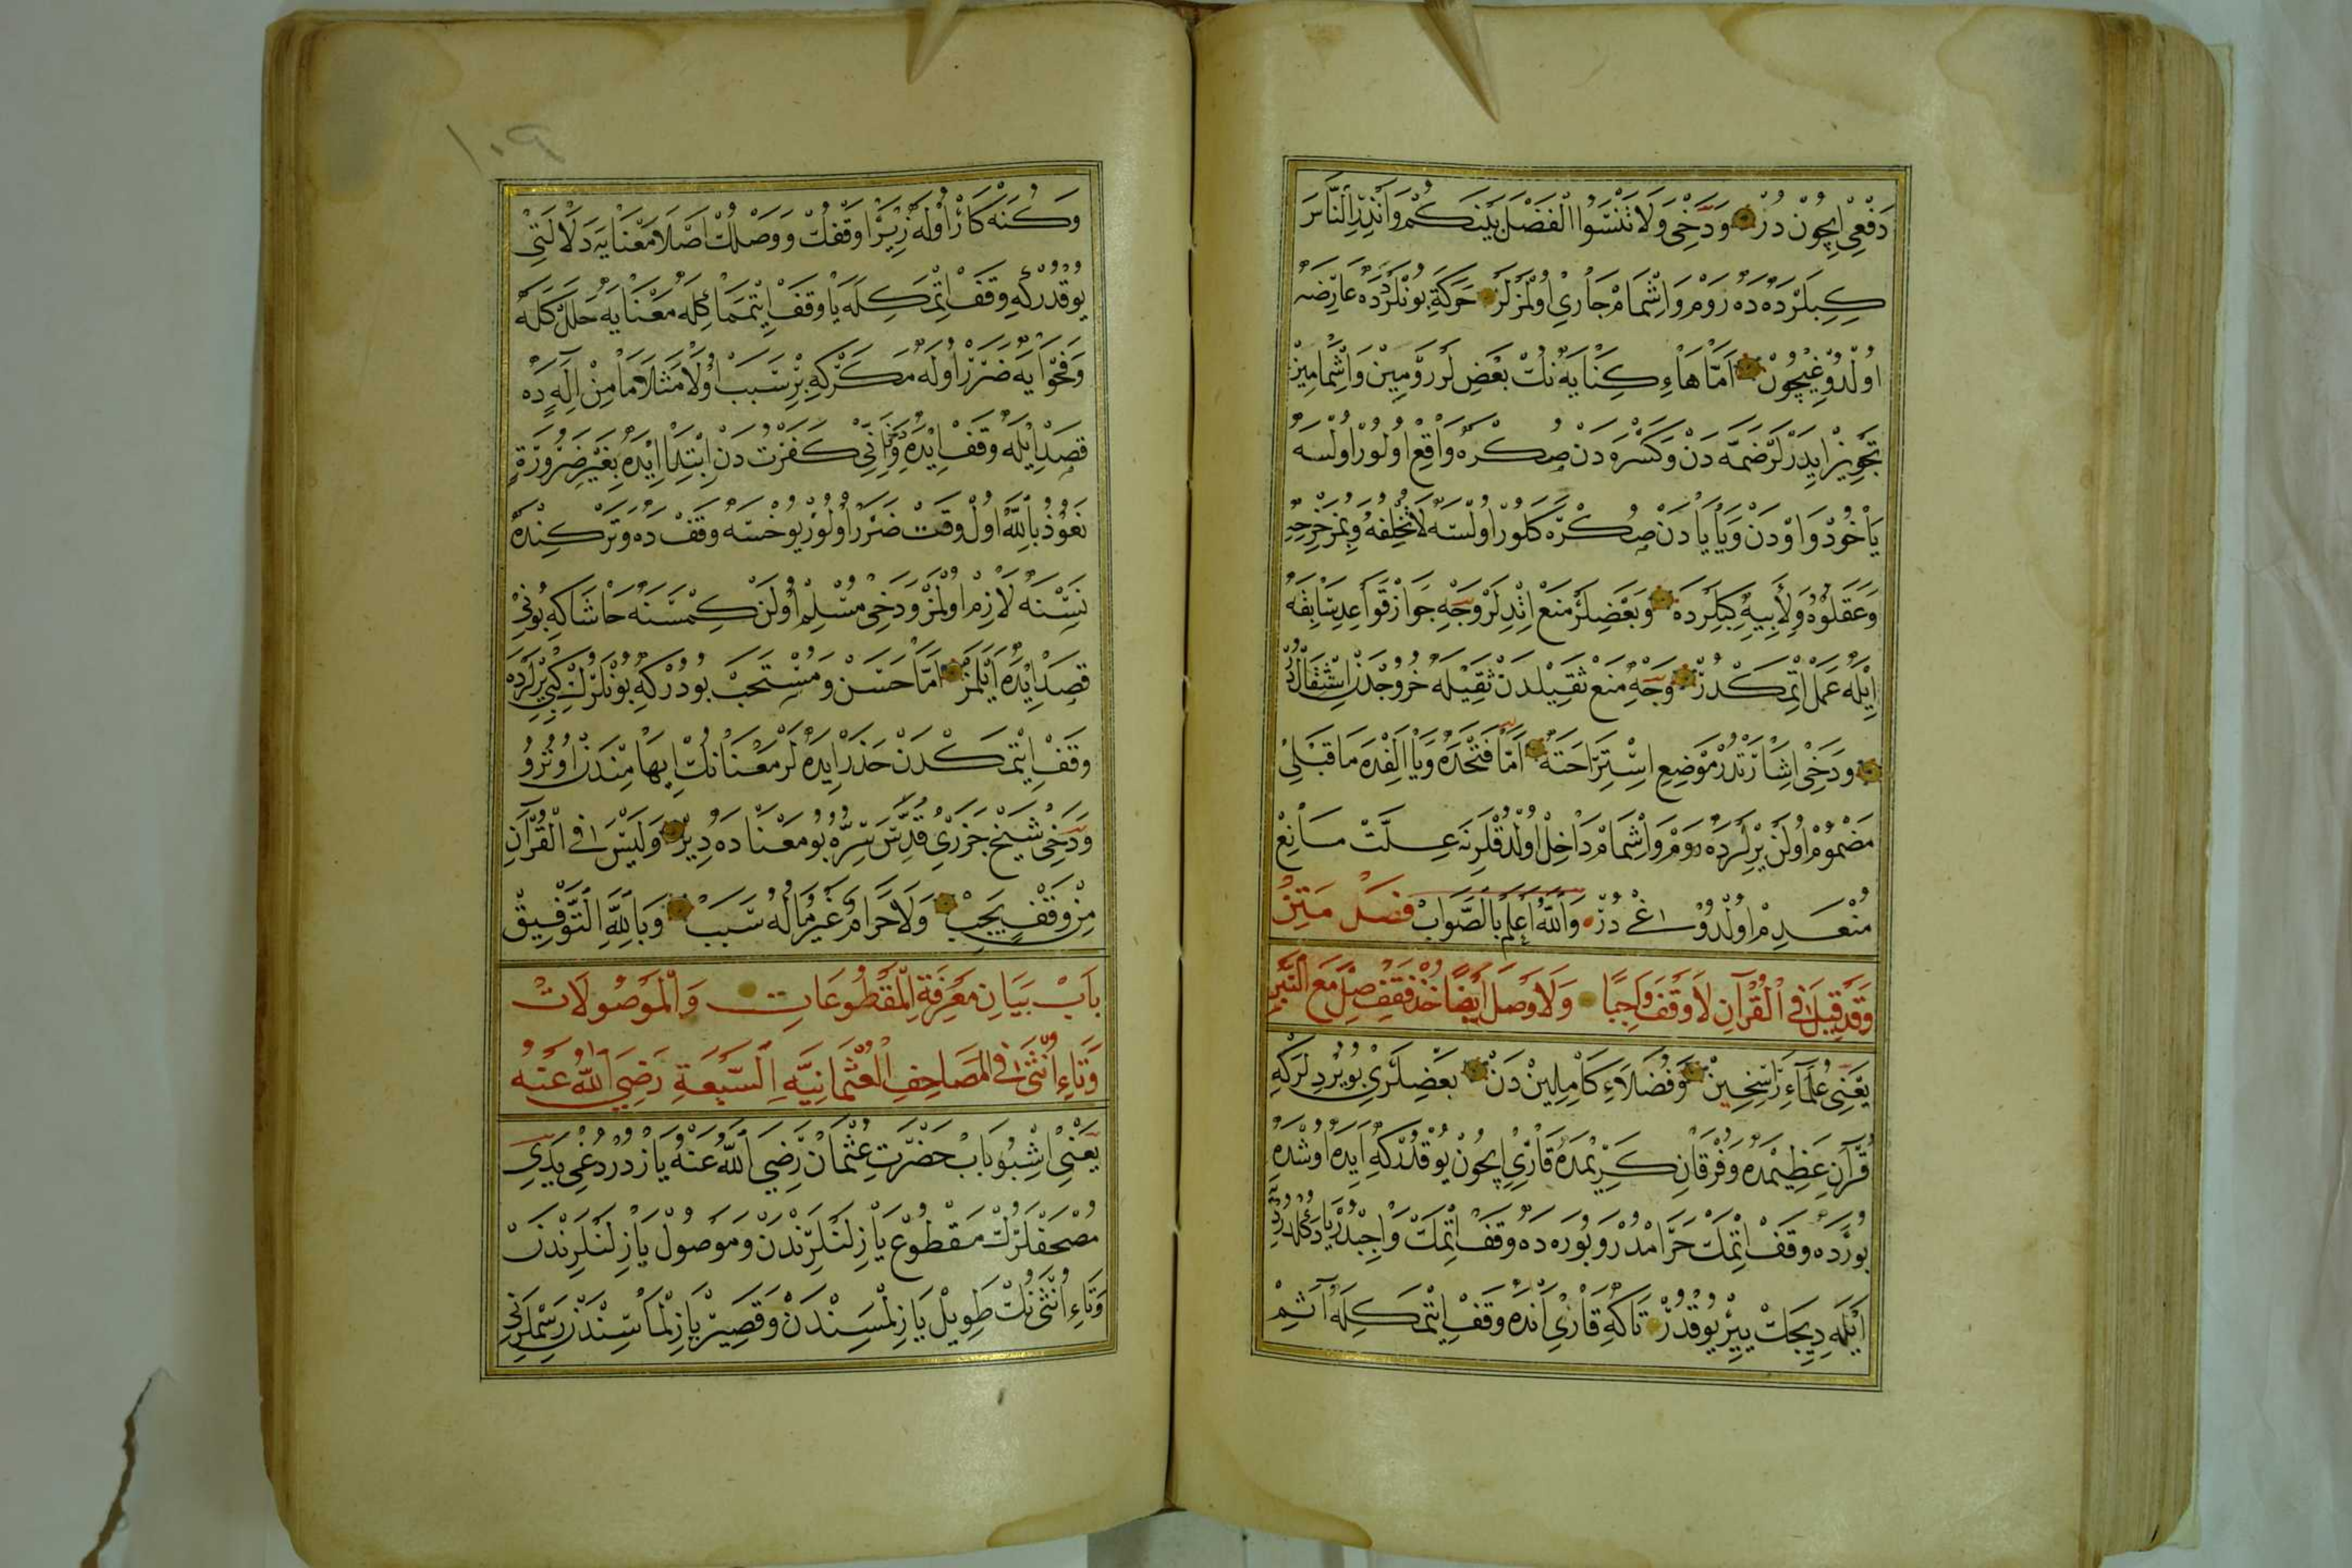 دَفْعِى اِيچُونْ دُرْ وَدَخِى وَلَا تَنْسَوُا الْفَضْلَ بَيْنَكُمْ وَاَنْذِرِ النَّاسَ
كِبِيلَرْدَه دَه رَوْم وَاِشْمَامْ جَارِى اُولْمَزْلَرْ حَرَكَةِ بُونْلَرْدَه عَارِضَه
اُولْدُوغِيچُونْ اَمَّا هَاءِ كِنَايَه نُكْ بَعْضِلَرْ رَوْمِينْ وَاِشْمَامِينْ
تَجْوِيزْ اِيدَرْلَرْ ضَمَّه دَنْ وَكَسْرَه دَنْ صُكْرَه وَاقِعْ اُولُورْ اُولْسَه
يَاخُودْ وَاوْدَنْ وَيَا يَادَنْ صُكْرَه كَلُورْ اُولْسَه لَا تُخْلِفُهُ وَبِمُزَحْزِحِهِ
وَعَقَلُوْهُ وَلِاَبِيهِ كِبِيلَرْدَه وَبَعْضِلَرْ مَنْعْ اِتْدِلَرْ وَجْهِ جَوَازْ قَوَاعِدِ سَابِقَه
اِيلَه عَمَلْ اِتْمَكْدُرْ وَجْهِ مَنْعْ ثَقِيلْدَنْ ثَقِيلَه خُرُوجْدَنْ اِسْتِثْقَالْدُرْ
وَدَخِى اِشَارَتْدُرْ مَوْضِعِ اِسْتِرَاحَتَه اَمَّا فَتْحَدَه وَيَا اَلِفْدَه مَا قَبْلِى
مَضْمُومْ اُولَنْ يِرْلَرْدَه رَوْم وَاِشْمَامْ دَاخِلْ اُولْدُقْلَرِنَه عِلَّتْ مَانِعْ
مُنْعَدِمْ اُولْدُوغِى دُرْ وَاللّٰهُ اَعْلَمُ بِالصَّوَابْ فَصْل مَتِنْ
وَقَدْ قِيلَ فِى الْقُرْآنِ لَا وَقْفَ وَاجِبًا وَلَا وَصْلَ اَيْضًا خُذْ فَقِفْ صِلْ مَعَ النَّبْرِ
يَعْنِى عُلَمَاءِ رَاسِخِينْ وَفُضَلَاءِ كَامِلِينْ دَنْ بَعْضِلَرِى بُيُرْدِلَرْكِه
قُرْآنِ عَظِيمْدَه وَفُرْقَانِ كَرِيمْدَه قَارِى اِيچُونْ يُوقْدُرْكِه اَيْدَه اُوشْدَه
بُورَدَه وَقَفْ اِتْمَكْ حَرَامْدُرْ وَبُورَه دَه وَقَفْ اِتْمَكْ وَاجِبْدُرْ يَا دَكُلْدُرْ
اَيْلَه دِيجَكْ يِيرْ يُوقْدُرْ تَاكِه قَارِى اَنْدَه وَقَفْ اِيتْمَكِلَه آثِمْ
وَكُنَه كَارْ اُولَه زِيرَا وَقْفُكْ وَوَصْلُكْ اَصْلَا مَعْنَايَه دَلَالَتِى
يُوقْدُرْكِه وَقَفْ اِتْمَكِلَه يَا وَقَفْ اِيتْمَمَكِلَه مَعْنَايَه خَلَلْ كَلَه
وَفَحْوَايَه ضَرَرْ اُولَه مَكَرْكِه بِرْ سَبَبْ اُولَا مَثَلَا مَا مِنْ اِلٰهٍ دَه
قَصْدِ اِيلَه وَقَفْ اِيدَه وَاِنِّى كَفَرْتُ دَنْ اِبْتِدَا اِيْدَه بِغَيْرِ ضَرُورَةٍ
نَعُوذُ بِاللّٰهِ اُولْ وَقَتْ ضَرَرْ اُولُورْ يُوخْسَه وَقَفْ دَه وَتَرْكِنْدَه
نَسْنَه لَازِمْ اُولْمَزْ وَدَخِى مُسْلِمْ اُولَنْ كِمْسَنَه حَاشَاكِه بُونِى
قَصْدْ اِيْدَه اَيْلَمَزْ اَمَّا حَسَنْ وَمُسْتَحَبْ بُودُرْكِه بُونْلَرُكْ كِبِى يِرْلَرْدَه
وَقَفْ اِيتْمَكْدَنْ حَذَرْ اِيدَه لَرْ مَعْنَانُكْ اِيهَامِنْدَنْ اُوتْرُو
وَدَخِى شَيْخْ جَزَرِى قُدِّسَ سِرُّه بُو مَعْنَادَه دِيرْ وَلَيْسَ فِى الْقُرْآنِ
مِنْ وَقْفٍ يَجِبْ وَلَا حَرَامٌ غَيْرُ مَا لَهُ سَبَبْ وَبِاللّٰهِ التَّوْفِيقْ
بَابْ بَيَانِ مَعْرِفَةِ الْمَقْطُوعَاتِ وَالْمَوْصُولَاتْ
وَتَاءِ اُنْثٰى فِى الْمَصَاحِفِ الْعُثْمَانِيَّه السَّبْعَةِ رَضِىَ اللّٰهُ عَنْهُ
يَعْنِى اِشْبُو بَابْ حَضْرَتِ عُثْمَانْ رَضِىَ اللّٰهُ عَنْهُ يَازْدُرْدُغِى يَدِى
مُصْحَفْلَرُكْ مَقْطُوعْ يَازِلَنْلَرِنْدَنْ وَمَوْصُولْ يَازِلَنْلَرِنْدَنْ
وَتَاءِ اُنْثٰى نُكْ طَوِيلْ يَازِلْمَسِنْدَنْ وَقَصِيرْ يَازِلْمَاسِنْدَنْ رَسْمْلَرِنِى